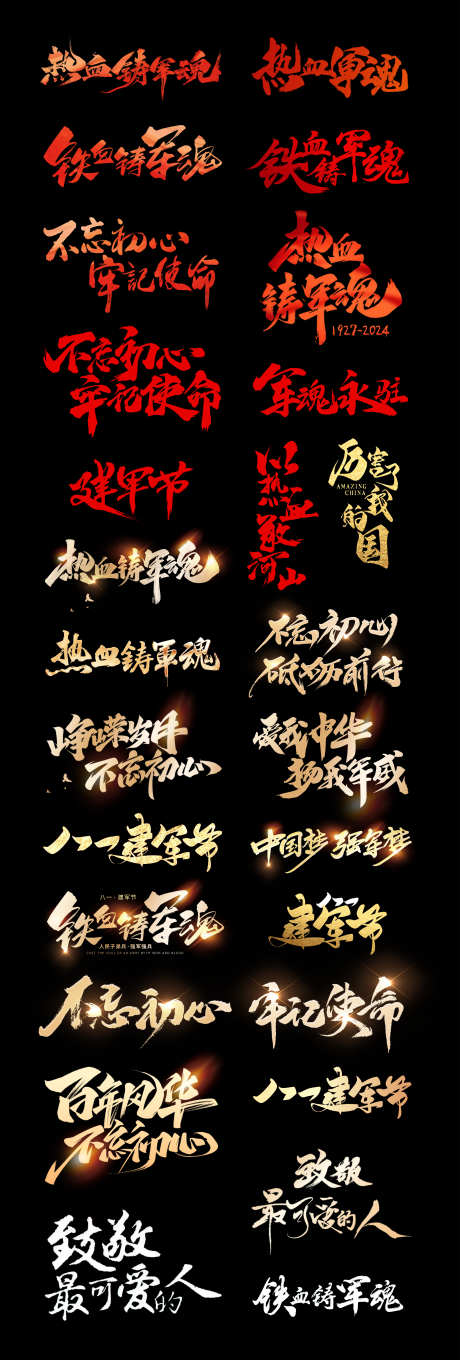 热血铸军魂
热血軍魂
铁血铸军魂
铁血铸军魂
不忘初心
牢記使命
热血
铸军魂
1927-2024
不忘初心
牢记使命
军魂永驻
建军节
以
热
血
敬
河
山
厉害了
我
的
国
AMAZING
CHINA
热血铸军魂
热血铸軍魂
不忘初心
砥砺前行
峥嵘岁月
不忘初心
爱我中华
扬我军威
八一建军节
中国梦 强军梦
八一·建军节
铁血铸军魂
人民子弟兵·强军强兵
建军节
不忘初心
牢记使命
百年风华
不忘初心
八一建军节
致敬
最可爱的人
致敬
最可爱的人
铁血铸军魂